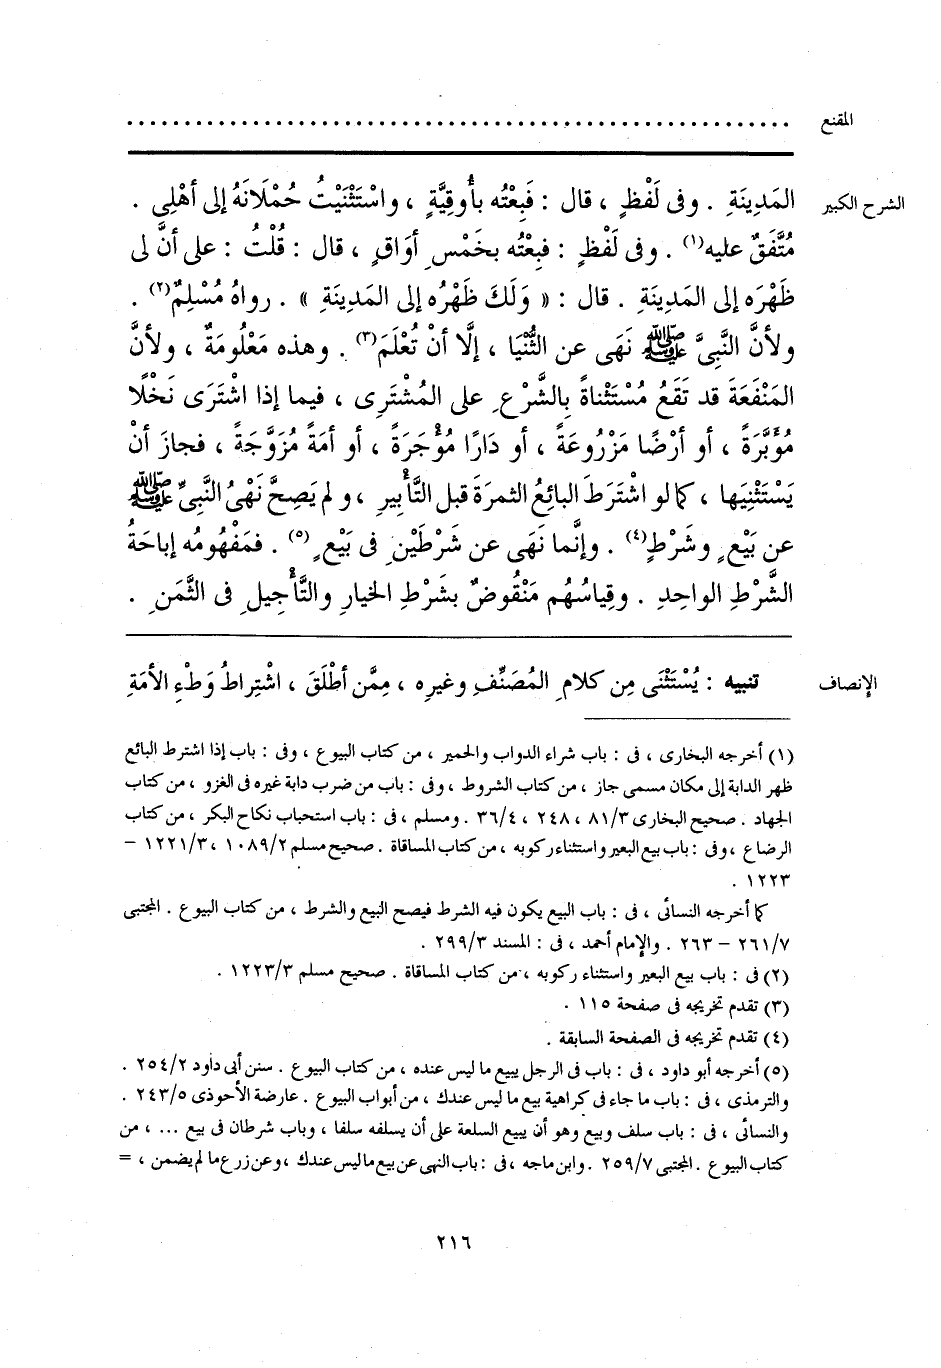 المقنع ........................................................
الشرح الكبير المَدِينَةِ . وفى لَفْظٍ ، قال : فَبِعْتُه بأُوقِيَّةٍ ، واسْتَثْنَيْتُ حُمْلَانَهُ إلى أهْلِى .
مُتَّفَقٌ عليه(١) . وفى لَفْظٍ : فبِعْتُه بخَمْسِ أوَاقٍ ، قال : قُلْتُ : على أنَّ لى
ظَهْرَه إلى المَدِينَةِ . قال : « وَلَكَ ظَهْرُه إلى المَدِينَةِ » . رواهُ مُسْلِمٌ(٢) .
ولأنَّ النَّبِىَّ ﷺ نَهَى عن الثُّنْيَا ، إلَّا أنْ تُعْلَمَ(٣) . وهذه مَعْلُومَةٌ ، ولأنَّ
المَنْفَعَةَ قد تَقَعُ مُسْتَثْناةً بالشَّرْعِ على المُشْتَرِى ، فيما إذا اشْتَرَى نَخْلًا
مُؤَبَّرَةً ، أو أرْضًا مَزْرُوعَةً ، أو دَارًا مُؤْجَرَةً ، أو أمَةً مُزَوَّجَةً ، فجازَ أنْ
يَسْتَثْنِيَها ، كما لو اشْتَرَطَ البائِعُ الثمرَةَ قبل التَّأْبِيرِ ، ولم يَصِحَّ نَهْىُ النَّبِىِّ ﷺ
عن بَيْعٍ وشَرْطٍ(٤) . وإنَّما نَهَى عن شَرْطَيْنِ فى بَيْعٍ(٥) . فمَفْهُومُه إباحَةُ
الشَّرْطِ الواحِدِ . وقِياسُهُم مَنْقُوضٌ بشَرْطِ الخيارِ والتَّأْجِيلِ فى الثَّمَنِ .
الإنصاف تنبيه : يُسْتَثْنَى مِن كلامِ المُصَنِّفِ وغيرِه ، مِمَّن أطْلَقَ ، اشْتِراطُ وَطْءِ الأمَةِ
(١) أخرجه البخارى ، فى : باب شراء الدواب والحمير ، من كتاب البيوع ، وفى : باب إذا اشترط البائع
ظهر الدابة إلى مكان مسمى جاز ، من كتاب الشروط ، وفى : باب من ضرب دابة غيره فى الغزو ، من كتاب
الجهاد . صحيح البخارى ٨١/٣ ، ٢٤٨ ، ٣٦/٤ . ومسلم ، فى : باب استحباب نكاح البكر ، من كتاب
الرضاع ، وفى : باب بيع البعير واستثناء ركوبه ، من كتاب المساقاة . صحيح مسلم ١٠٨٩/٢ ، ١٢٢١/٣ –
١٢٢٣ .
كما أخرجه النسائى ، فى : باب البيع يكون فيه الشرط فيصح البيع والشرط ، من كتاب البيوع . المجتبى
٢٦١/٧ – ٢٦٣ . والإمام أحمد ، فى : المسند ٢٩٩/٣ .
(٢) فى : باب بيع البعير واستثناء ركوبه ، من كتاب المساقاة . صحيح مسلم ١٢٢٣/٣ .
(٣) تقدم تخريجه فى صفحة ١١٥ .
(٤) تقدم تخريجه فى الصفحة السابقة .
(٥) أخرجه أبو داود ، فى : باب فى الرجل يبيع ما ليس عنده ، من كتاب البيوع . سنن أبى داود ٢٥٤/٢ .
والترمذى ، فى : باب ما جاء فى كراهية بيع ما ليس عندك ، من أبواب البيوع . عارضة الأحوذى ٢٤٣/٥ .
والنسائى ، فى : باب سلف وبيع وهو أن يبيع السلعة على أن يسلفه سلفا ، وباب شرطان فى بيع ... ، من
كتاب البيوع . المجتبى ٢٥٩/٧ . وابن ماجه ، فى : باب النهى عن بيع ما ليس عندك ، وعن زرع ما لم يضمن ، =
٢١٦